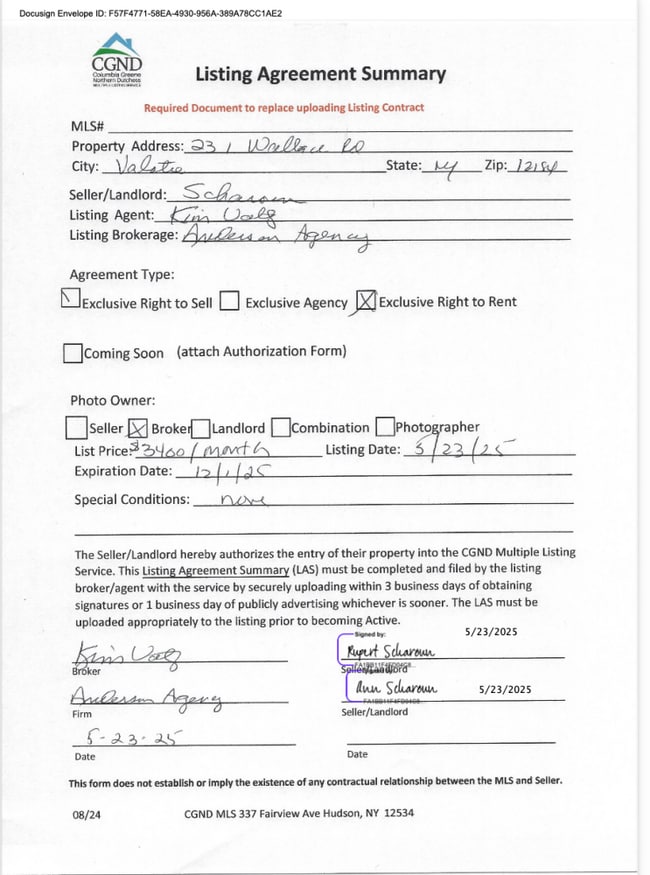 Docusign Envelope ID: F57F4771-58EA-4930-956A-389A78CC1AE2
CGND
Columbia Greene
Northern Dutchess
MULTIPLE LISTING SERVICE
Listing Agreement Summary
Required Document to replace uploading Listing Contract
MLS#
Property Address: 231 Wallace RD
City: Valatie State: NY Zip: 12184
Seller/Landlord: Scharoun
Listing Agent: Kim
Listing Brokerage: Anderson Agency
Agreement Type:
Exclusive Right to Sell Exclusive Agency X Exclusive Right to Rent
Coming Soon (attach Authorization Form)
Photo Owner:
Seller X Broker Landlord Combination Photographer
List Price: $3400/month Listing Date: 5/23/25
Expiration Date: 12/1/25
Special Conditions: none
The Seller/Landlord hereby authorizes the entry of their property into the CGND Multiple Listing
Service. This Listing Agreement Summary (LAS) must be completed and filed by the listing
broker/agent with the service by securely uploading within 3 business days of obtaining
signatures or 1 business day of publicly advertising whichever is sooner. The LAS must be
uploaded appropriately to the listing prior to becoming Active.
Signed by: 5/23/2025
Kim Rupert Scharoun
Broker Seller/Landlord
Anderson Agency Ann Scharoun 5/23/2025
Firm Seller/Landlord
5-23-25
Date Date
This form does not establish or imply the existence of any contractual relationship between the MLS and Seller.
08/24 CGND MLS 337 Fairview Ave Hudson, NY 12534